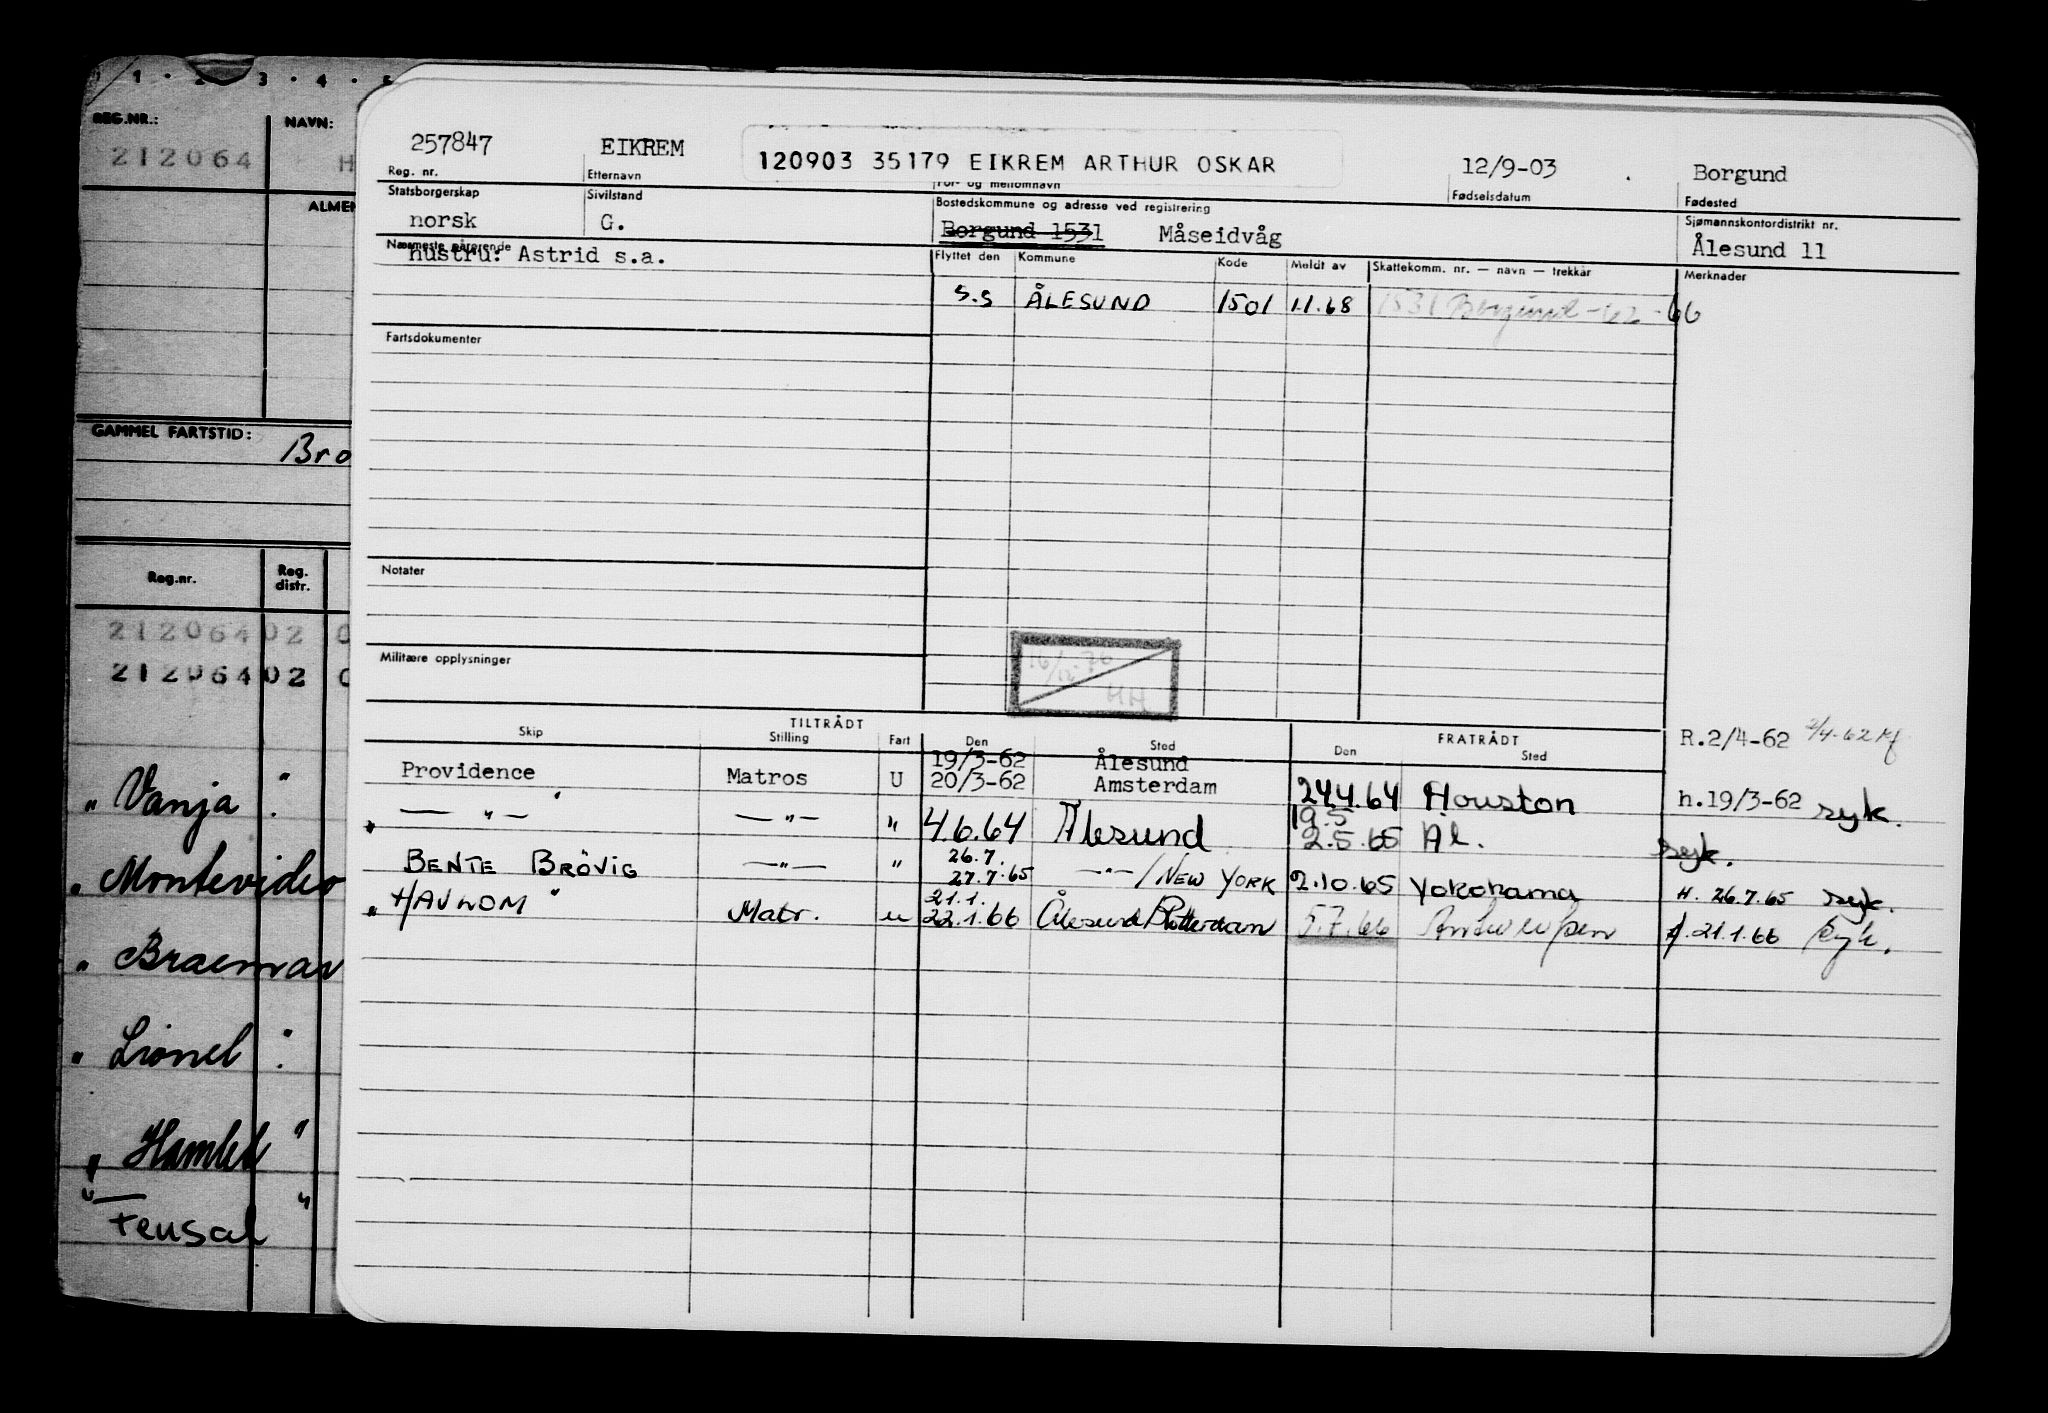 1 . 2 . 3 . 4 . 5
REG.NR.: NAVN:
212064 H
ALMEN
GAMMEL FARTSTID:
Bro
Reg.nr. Reg. distr.
21206402 0
21206402 0
" Vanja "
" Montevideo
" Braemar
" Lionel "
" Hamlet "
" Feusal "
257847 EIKREM 120903 35179 EIKREM ARTHUR OSKAR 12/9-03 Borgund
Reg. nr. Etternavn For- og mellomnavn Fødselsdatum Fødested
Statsborgerskap Sivilstand Bostedskommune og adresse ved registrering Sjømannskontordistrikt nr.
norsk G. Borgund 1531 Måseidvåg Ålesund 11
Nærmeste pårørende Flyttet den Kommune Kode Meldt av Skattekomm. nr. — navn — trekkår Merknader
hustru: Astrid s.a.
S.S ÅLESUND 1501 1.1.68 1531 Borgund -62-66
Fartsdokumenter
Notater
Militære opplysninger
16/12-70
HH
TILTRÅDT FRATRÅDT
Skip Stilling Fart Den Sted Den Sted
R.2/4-62 2/4-62
19/3-62 Ålesund
Providence Matros U 20/3-62 Amsterdam 24.4.64 Houston h.19/3-62 syk.
" — " — " — " — " 4.6.64 Ålesund 19.5 2.5.65 Ål. syk.
BENTE BRÖVIG — " — " 26.7. 27.7.65 — " — / NEW YORK 2.10.65 Yokohama H. 26.7.65 syk.
" HAVMOM " Matr. u 21.1. 22.1.66 Ålesund/Rotterdam 5.7.66 Antwerpen 21.1.66 syk.